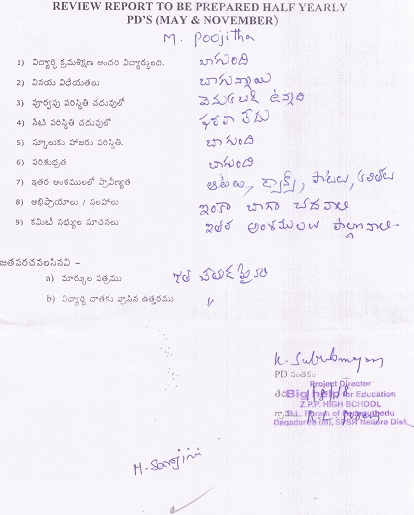 REVIEW REPORT TO BE PREPARED HALF YEARLY
PD'S (MAY & NOVEMBER)
M. Poojitha
1) విద్యార్థి క్రమశిక్షణ అందరి విద్యార్థులది. బాగుంది
2) వినయ విధేయతలు బాగున్నాయి
3) పూర్వపు పరిస్థితి చదువులో వెనుకబడి ఉన్నది
4) నేటి పరిస్థితి చదువులో ఫరవా లేదు
5) స్కూలుకు హాజరు పరిస్థితి. బాగుంది
6) పరిశుభ్రత బాగుంది
7) ఇతర అంశములలో ప్రావీణ్యత ఆటలు, పాటలు,
8) అభిప్రాయాలు / సలహాలు ఇంకా బాగా చదవాలి
9) కమిటీ సభ్యుల సూచనలు ఇతర అంశములలో
జతపరచవలసినవి –
a) మార్కుల పత్రము
b) విద్యార్థి దాతకు వ్రాసిన ఉత్తరము "
PD సంతకం
Project Director
Big help for Education
Z.P.P. HIGH SCHOOL
Dagadarthi (M), SPSR Nellore Dist.
M. Sarojini